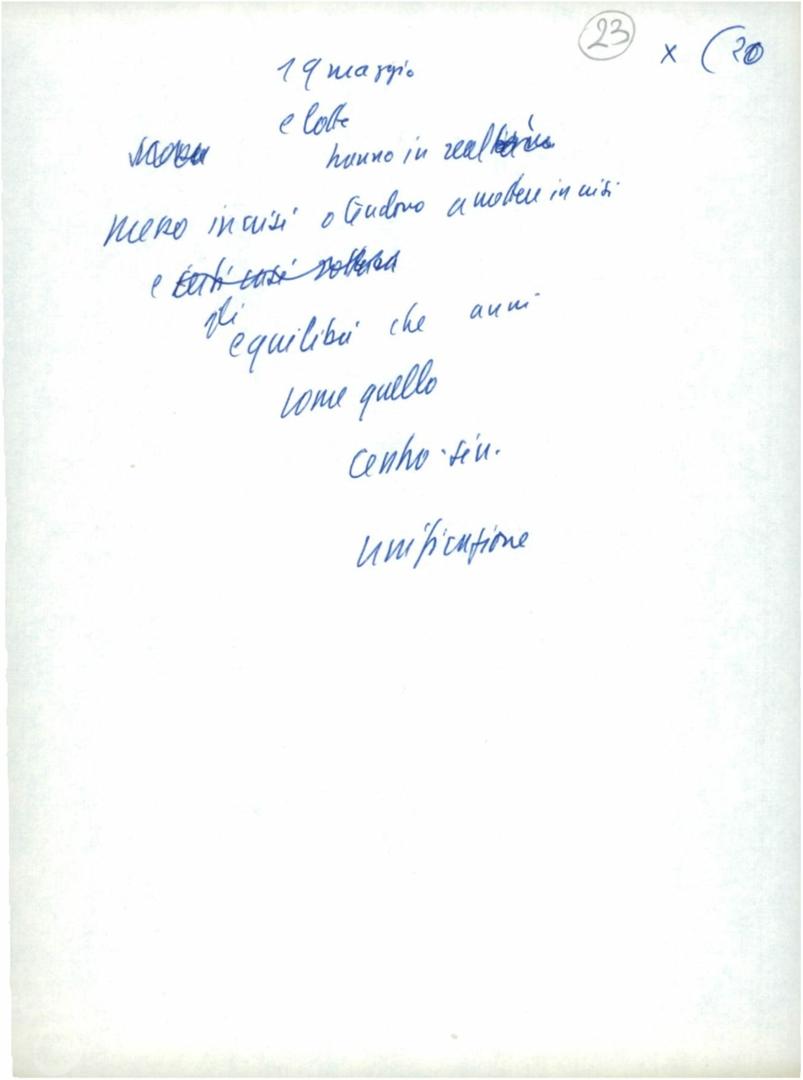 23 x (20
19 maggio
e lotte
hanno in
messo in crisi o tendono a mettere in crisi
e
gli
equilibri che anni
come quello
centro-sin.
unificazione